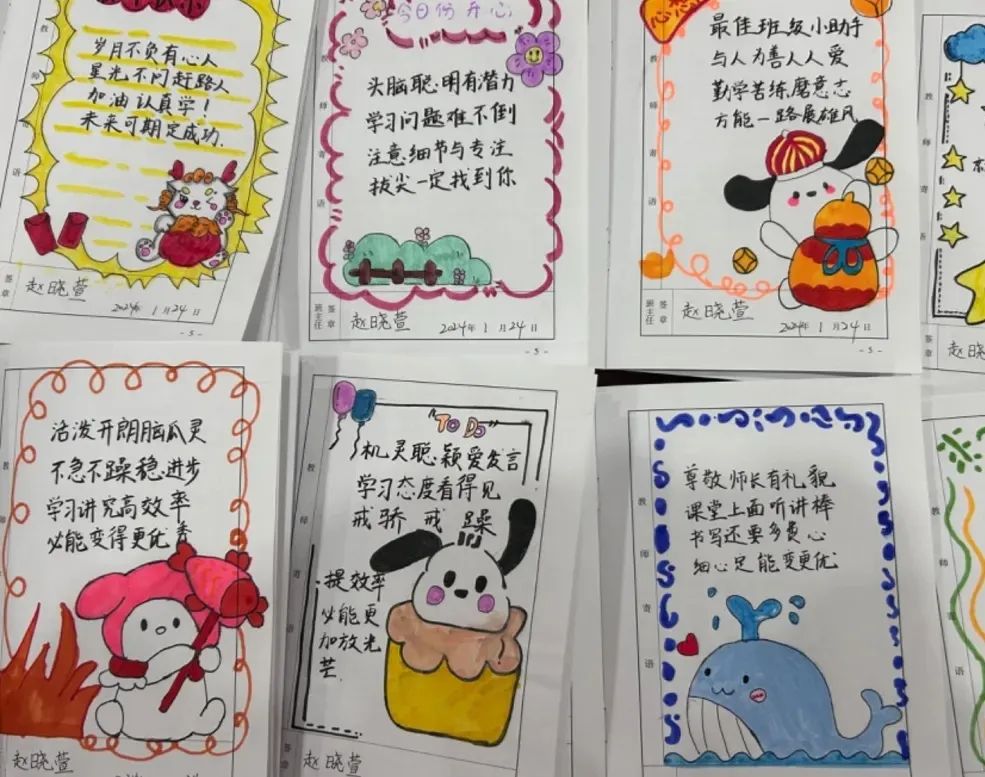 岁月不负有心人
星光不问赶路人
加油认真学！
未来可期定成功.
教师寄语
签章
赵晓萱
2024年1月24日
-5-
今日份开心
头脑聪明有潜力
学习问题难不倒
注意细节与专注
拔尖一定找到你
教师寄语
班主任
签章
赵晓萱
2024年1月24日
-5-
最佳班级小助手
与人为善人人爱
勤学苦练磨意志
方能一路展雄风
教师寄语
班主任
签章
赵晓萱
2024年1月24日
-5-
教师寄语
签章
赵晓
活泼开朗脑瓜灵
不急不躁稳进步
学习讲究高效率
必能变得更优秀
赵晓萱
"TO DO"
机灵聪颖爱发言
学习态度看得见
戒骄戒躁
提效率
必能更
加放光
芒.
教师寄语
签章
赵晓萱
尊敬师长有礼貌
课堂上面听讲棒
书写还要多费心
细心足能变更优
教师寄语
教师
语